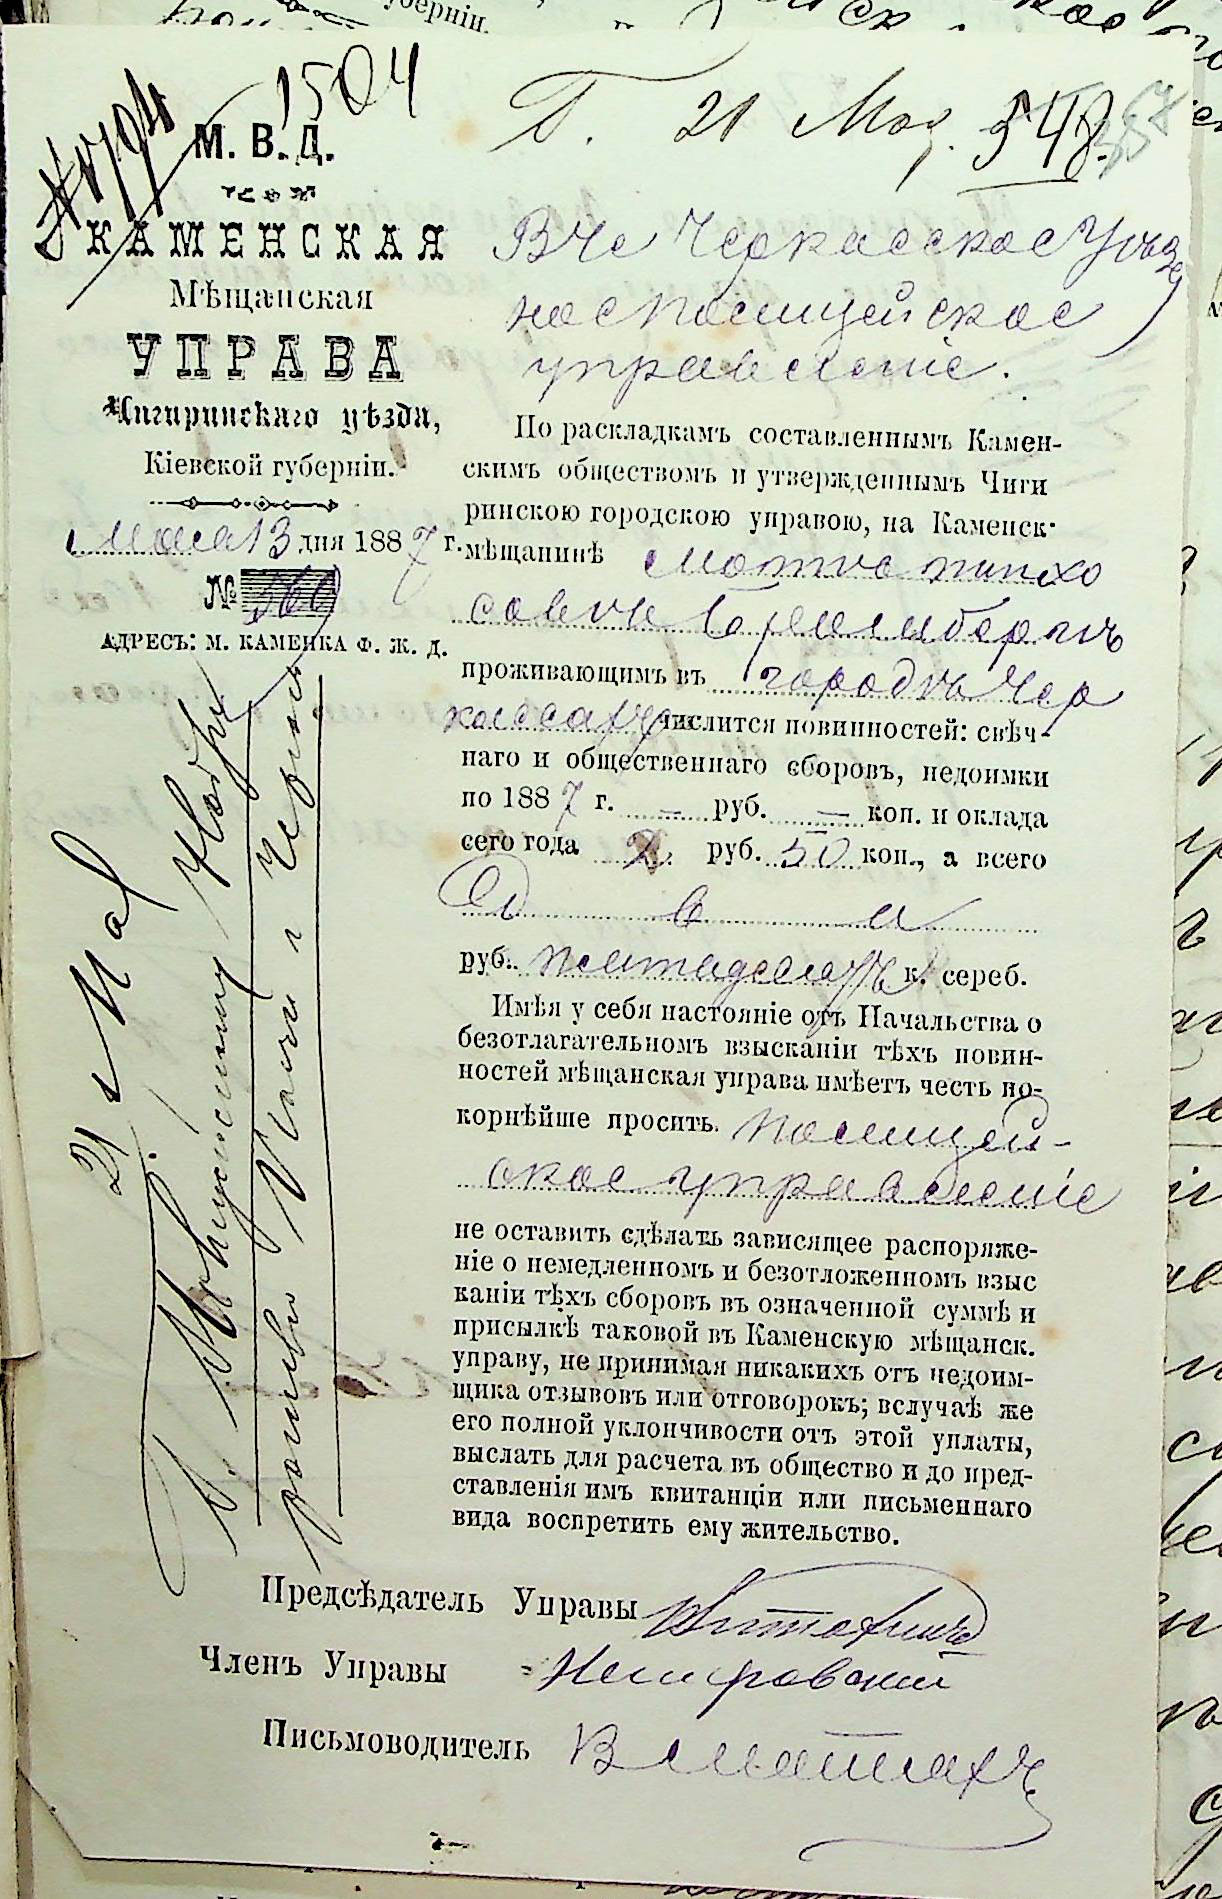 1504
М. В. Д.
КАМЕНСКАЯ
Мѣщанская
УПРАВА
Чигиринскаго уѣзда,
Кіевской губерніи.
мая 13 дня 1887 г.
№ 560
АДРЕСЪ: М. КАМЕНКА Ф. Ж. Д.
П. 21 Мая. 548.
Въ Черкасское Уѣзд
ное полицейское
управленіе.
По раскладкамъ составленнымъ Камен-
скимъ обществомъ и утвержденнымъ Чиги
ринскою городскою управою, на Каменск.
мѣщанинѣ Мотѣ Пинхо
совѣ
проживающимъ въ городѣ Чер
кассахъ числится повинностей: свѣч-
наго и общественнаго сборовъ, недоимки
по 1887 г. — руб. — коп. и оклада
сего года 2 руб. 50 коп., а всего
Два
руб. пятьдесятъ к. сереб.
Имѣя у себя настояніе отъ Начальства о
безотлагательномъ взысканіи тѣхъ повин-
ностей мѣщанская управа имѣетъ честь по-
корнѣйше просить. полицей-
ское управленіе
не оставить сдѣлать зависящее распоряже-
ніе о немедленномъ и безотложенномъ взыс
каніи тѣхъ сборовъ въ означенной суммѣ и
присылкѣ таковой въ Каменскую мѣщанск.
управу, не принимая никакихъ отъ недоим-
щика отзывовъ или отговорокъ; вслучаѣ же
его полной уклончивости отъ этой уплаты,
выслать для расчета въ общество и до пред-
ставленія имъ квитанціи или письменнаго
вида воспретить ему жительство.
21 Мая
Предсѣдатель Управы
Членъ Управы
Письмоводитель